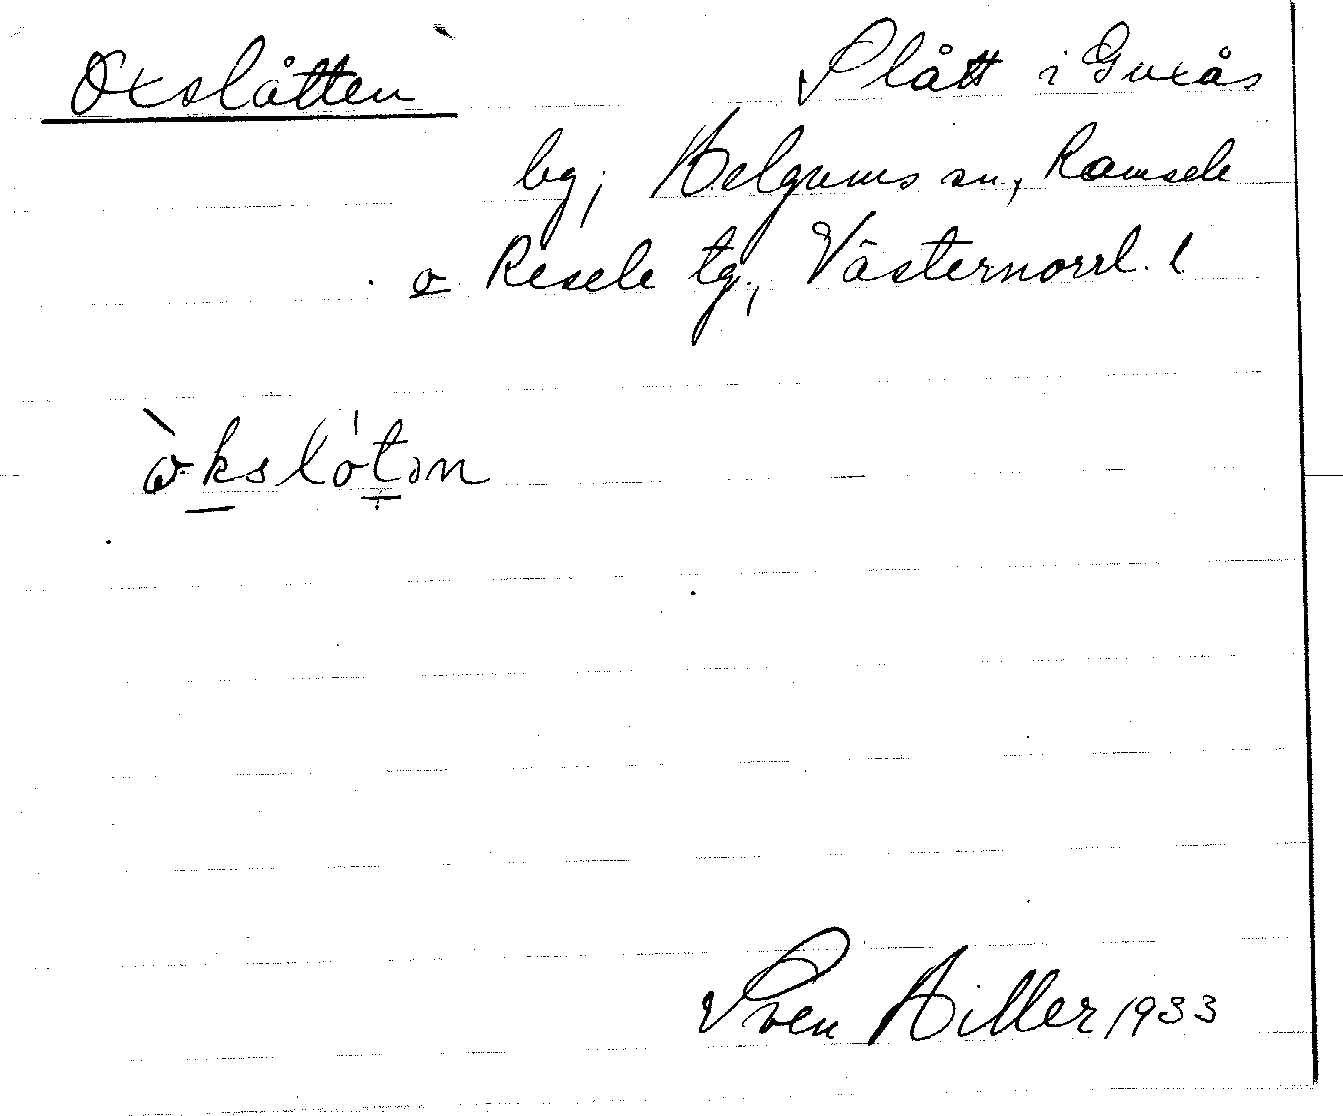 Oxslåtten Slått i Guxås
by, Helgums sn, Ramsele
o Resele tg, Västernorrl. l
Sven Hiller 1933